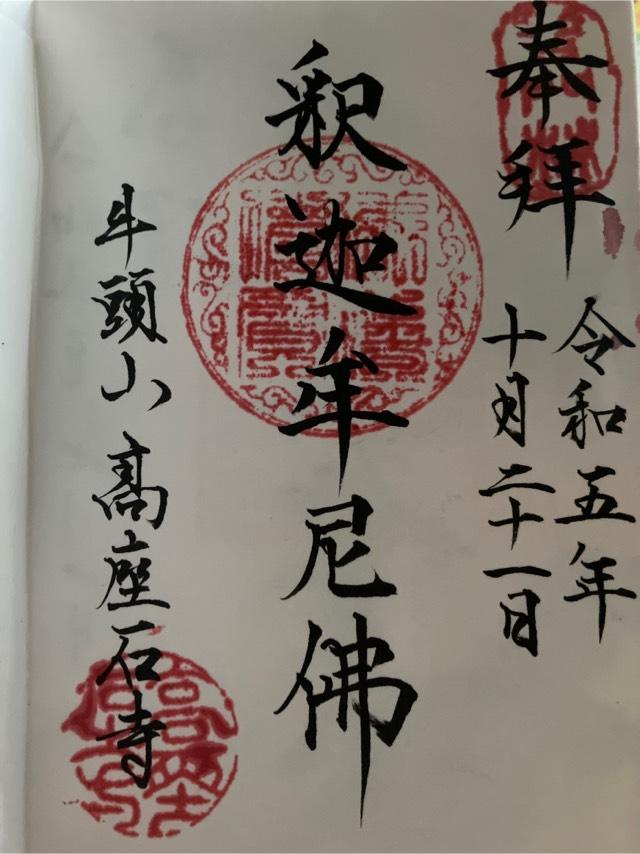 奉拝
令和五年
十月二十一日
釈迦牟尼佛
牛頭山 高座石寺